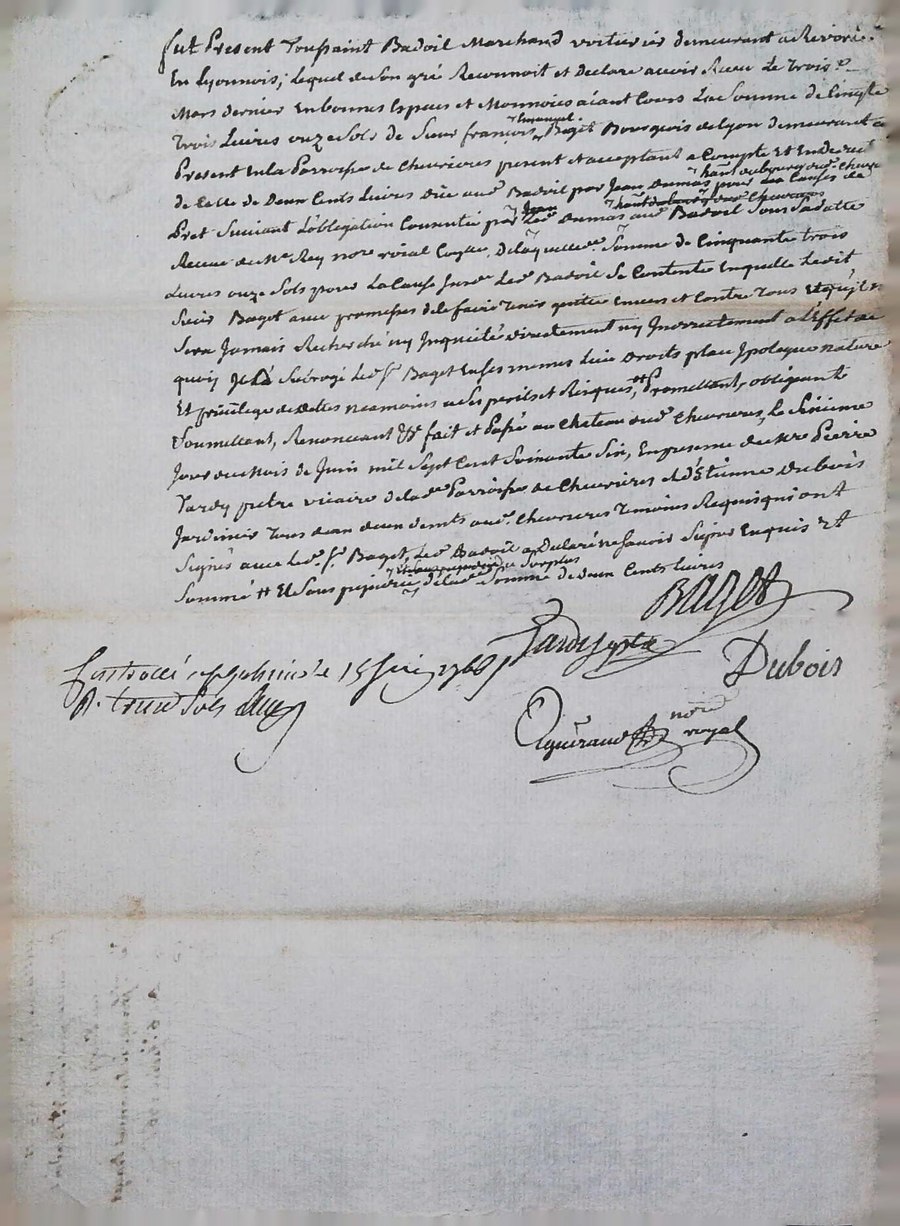 fut Present Toussaint Badoil Marchand voiturier demeurant a Riverie
En Lyonnois, lequel de son gré Reconnoit et Declare avoir Receu Le trois
Mars dernier En bonnes Especes et Monnoies aiant Cours La Somme de Cinqte
Trois Livres onze Sols de Sieur françois Emanuel Baget Bourgeois de Lyon demeurant a
Present En la Parroisse de Chevrieres present et acceptant a Compte Et
de Celle de Deux Cents Livres Düe aud Badoil par Jean Dumas pour Les Causes de
Pret Suivant L'obligation Consentie par Led Dumas aud Badoil Sous Sa datte
Receue de Me Rey nore roial De laquelle Somme de Cinquante trois
Livres onze Sols pour La Cause Led Badoil Se Contente En quitte Ledit
Sieur Baget avec promesse de le faire tenir quitte Envers et Contre Tous
Sera Jamais Recherché ny Inquieté directement ny Indirectement a L'Effet de
quoy Il a Subrogé led Sr Baget En ses memes lieu Droits place Ipoteque nature
Et privilege de dattes neamoins a Ses perils et Risques, Promettant, obligeant
Soumettant, Renonceant &a fait et Passé au Chateau dud Chevrieres, Le
Jour du Mois de Juin mil Sept Cent Soixante Six, En presence de Mre Pierre
Tardy pretre vicaire de lad Parroisse de Chevrieres et d'Etienne Dubois
Jardinier Tous deux demts aud Chevrieres temoins Requis qui ont
Signés avec led Sr Baget, led Badoil a Declaré ne Savoir Signer Enquis Et
Sommé Et Sans prejudice du Surplus de lad Somme de deux Cents livres
Baget
Tardy ptre
Dubois
Controllé a St Galmier le 15 Juin 1766
R. treize Sols
nore
royal